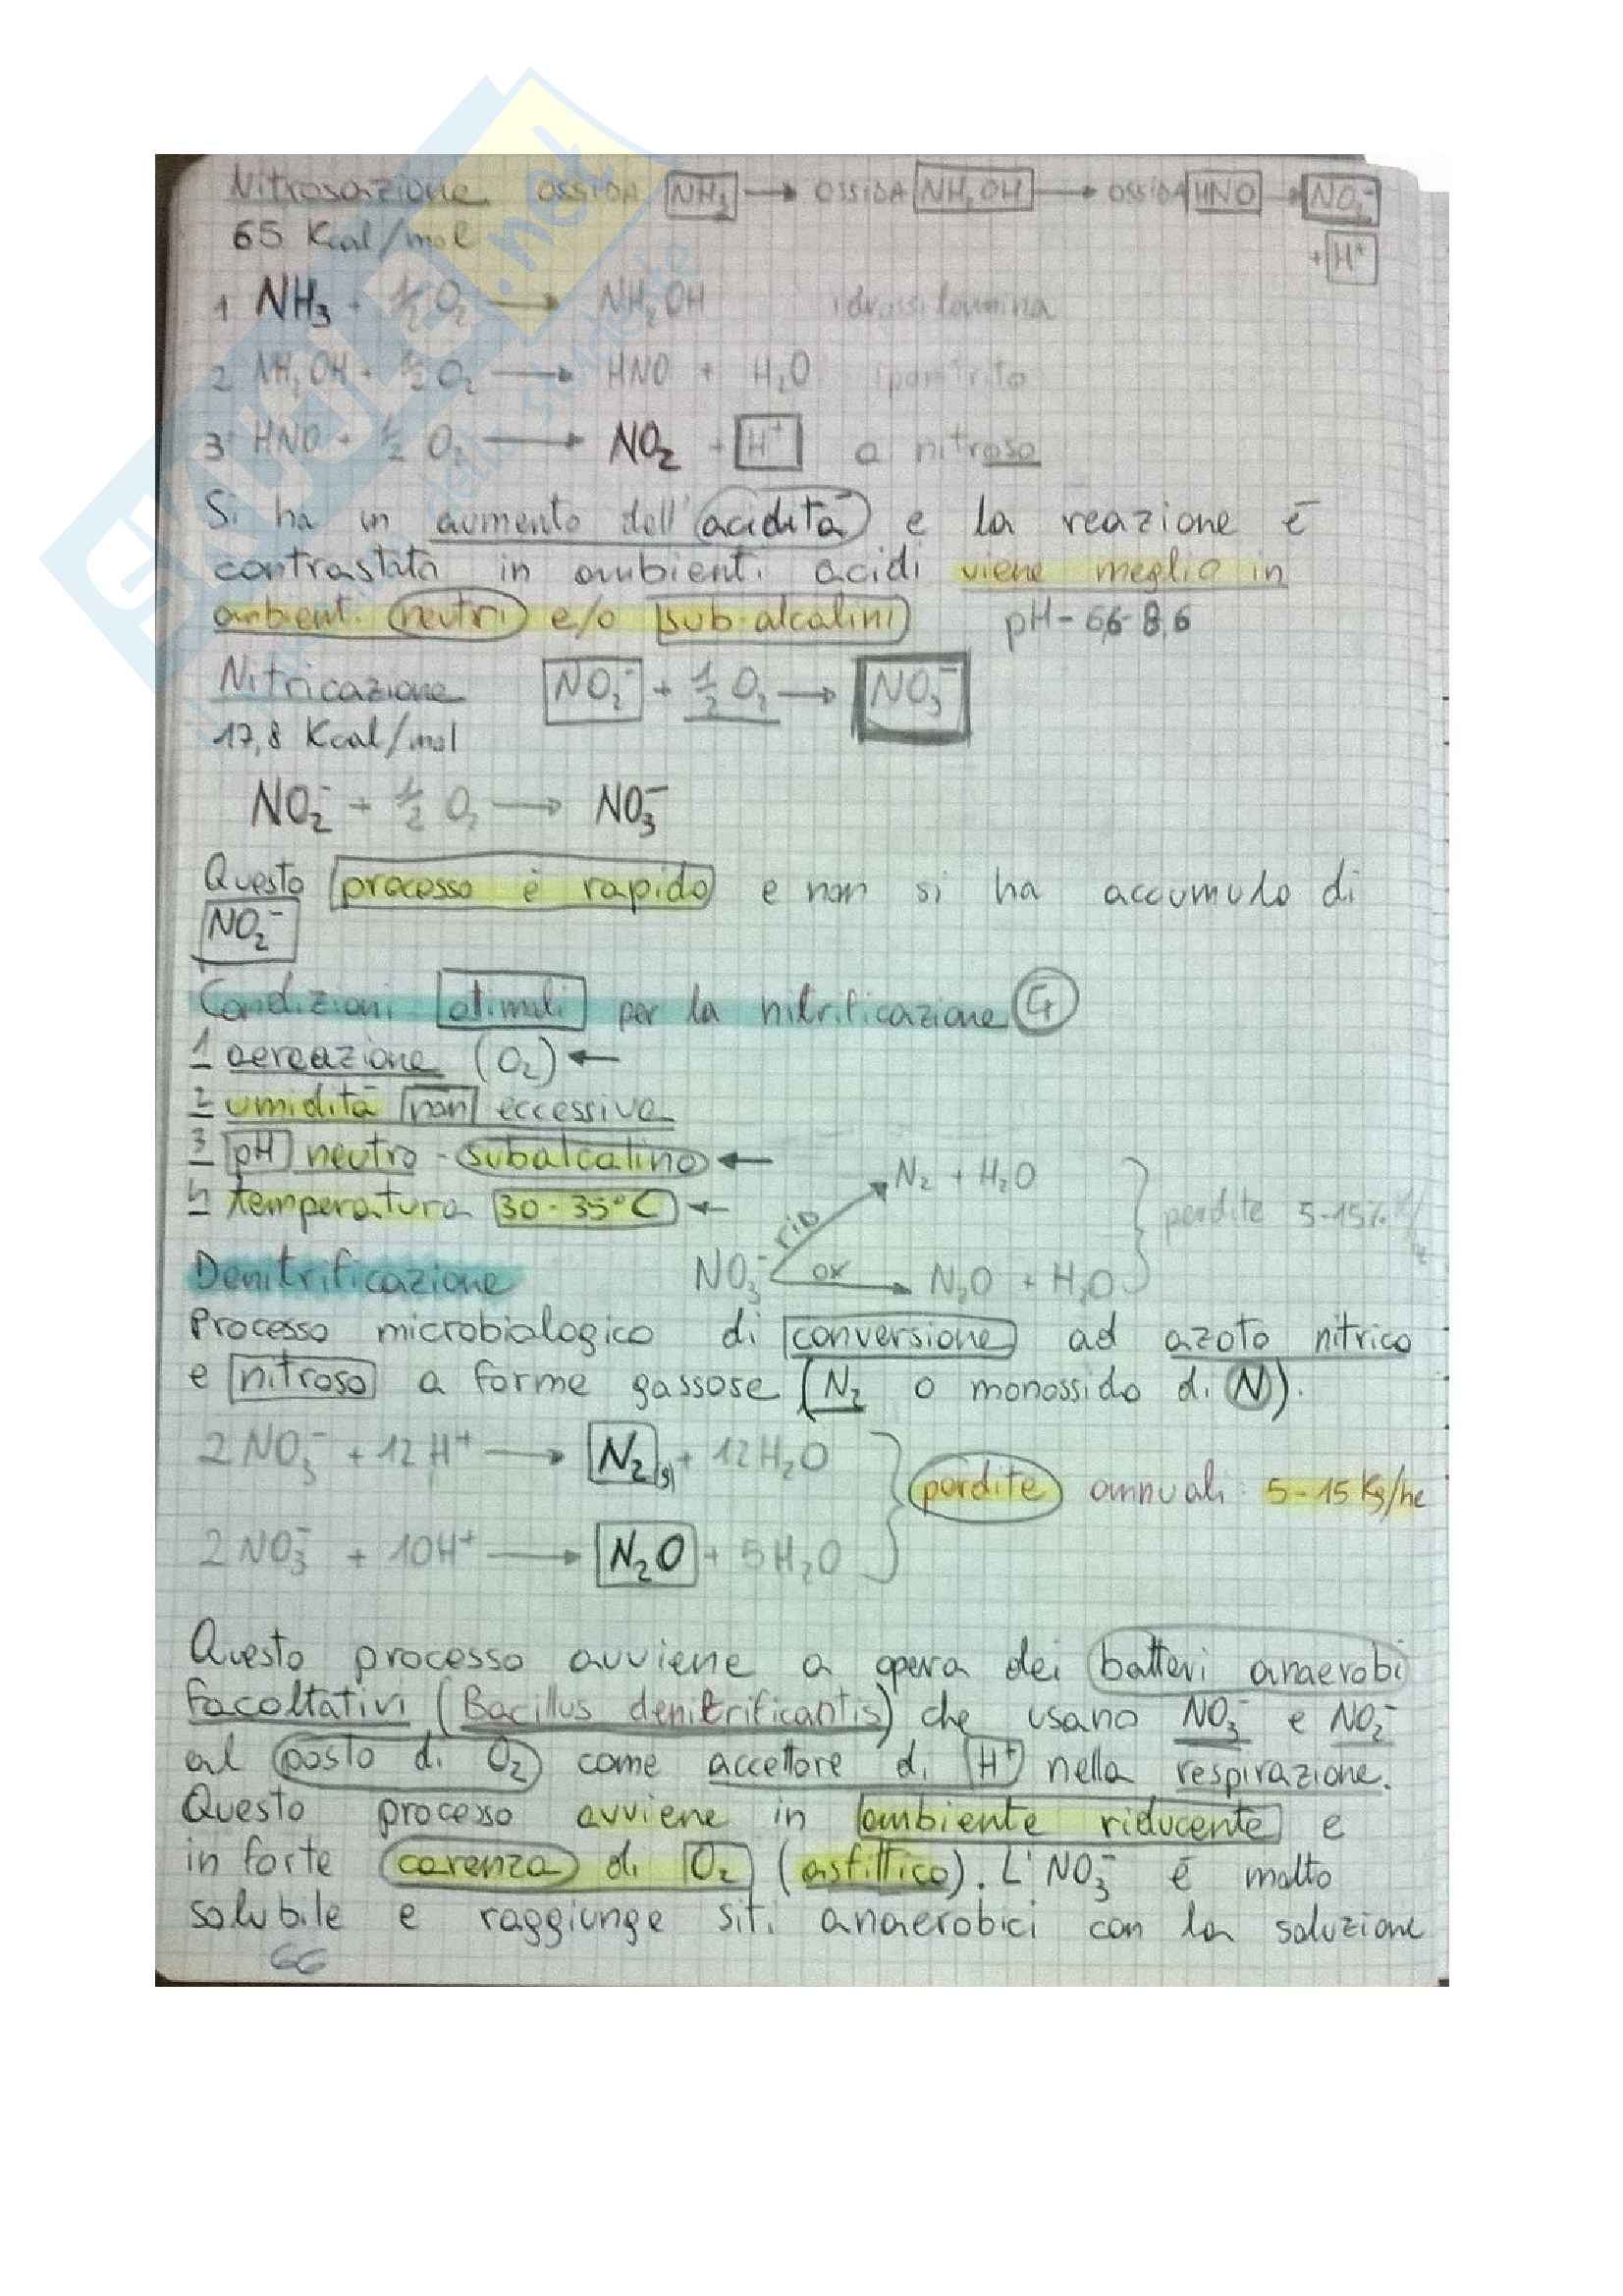 Nitrosazione OSSIDA NH3 → OSSIDA NH2OH → OSSIDA HNO → NO2-
65 Kcal/mol + H+
1 NH3 + 1/2 O2 → NH2OH idrossilamina
2 NH2OH + 1/2 O2 → HNO + H2O
3 HNO + 1/2 O2 → NO2 + H+ a nitroso
Si ha un aumento dell'acidità e la reazione è
contrastata in ambienti acidi viene meglio in
ambienti neutri e/o sub-alcalini pH - 6,6-8,6
Nitricazione NO2- + 1/2 O2 → NO3-
17,8 Kcal/mol
NO2- + 1/2 O2 → NO3-
Questo processo è rapido e non si ha accumulo di
NO2-
Condizioni otimali per la nitrificazione
1 aereazione (O2) ←
2 umidità non eccessiva
3 pH neutro - subalcalino ←
4 temperatura 30-35°C ←
N2 + H2O
rid
perdite 5-15%
Denitrificazione NO3- ox → N2O + H2O
Processo microbiologico di conversione ad azoto nitrico
e nitroso a forme gassose (N2 o monossido di N).
2 NO3- + 12 H+ → N2(g) + 12 H2O
perdite annuali: 5-15 Kg/he
2 NO3- + 10H+ → N2O + 5 H2O
Questo processo avviene a opera dei batteri anaerobi
facoltativi (Bacillus denitrificantis) che usano NO3- e NO2-
al posto di O2 come accettore di H+ nella respirazione.
Questo processo avviene in ambiente riducente e
in forte carenza di O2 (asfittico). L'NO3- è molto
solubile e raggiunge siti anaerobici con la soluzione
66